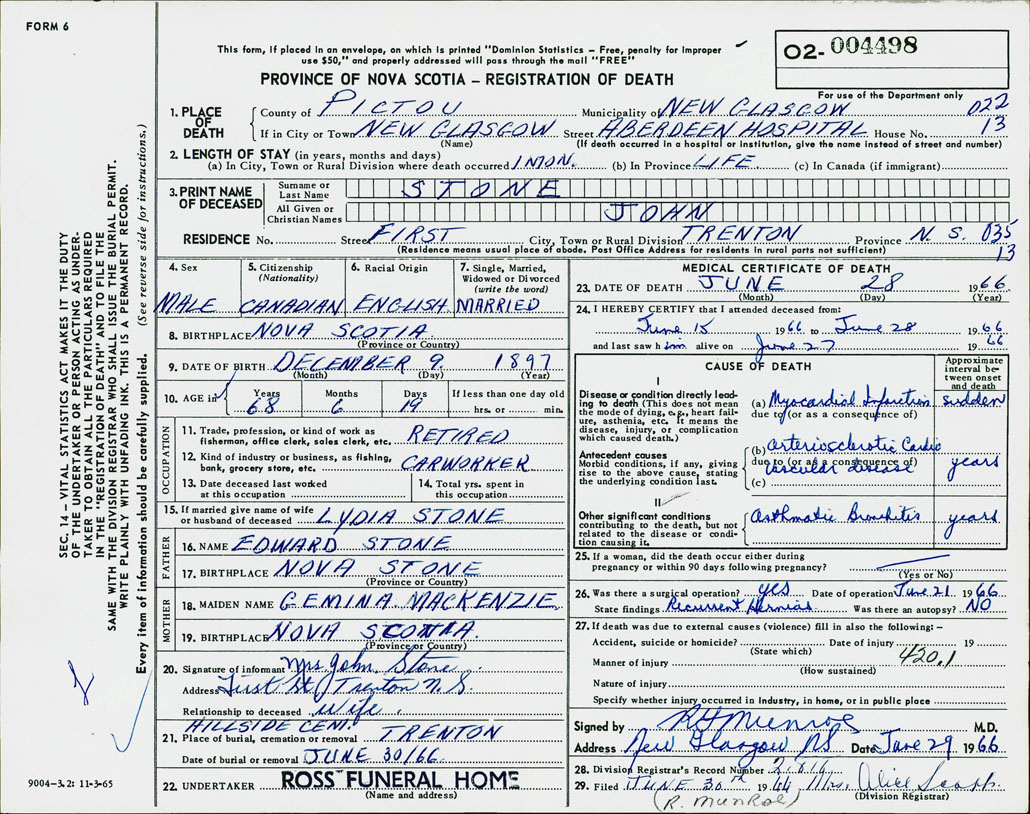 FORM 6
This form, if placed in an envelope, on which is printed "Dominion Statistics – Free, penalty for improper
use $50," and properly addressed will pass through the mail "FREE"
PROVINCE OF NOVA SCOTIA – REGISTRATION OF DEATH
02-004498
For use of the Department only
1. PLACE OF DEATH County of PICTOU Municipality of NEW GLASGOW 022
If in City or Town NEW GLASGOW Street ABERDEEN HOSPITAL House No. 13
(Name) (If death occurred in a hospital or institution, give the name instead of street and number)
2. LENGTH OF STAY (in years, months and days)
(a) In City, Town or Rural Division where death occurred 1 MON. (b) In Province LIFE (c) In Canada (if immigrant)
3. PRINT NAME OF DECEASED Surname or Last Name STONE
All Given or Christian Names JOHN
RESIDENCE No. Street FIRST City, Town or Rural Division TRENTON Province N. S. 035
(Residence means usual place of abode. Post Office Address for residents in rural parts not sufficient) 13
4. Sex 5. Citizenship (Nationality) 6. Racial Origin 7. Single, Married, Widowed or Divorced (write the word)
MALE CANADIAN ENGLISH MARRIED
8. BIRTHPLACE NOVA SCOTIA
(Province or Country)
9. DATE OF BIRTH DECEMBER 9. 1897
(Month) (Day) (Year)
10. AGE in Years Months Days If less than one day old
68 6 19 hrs. or min.
OCCUPATION
11. Trade, profession, or kind of work as fisherman, office clerk, sales clerk, etc. RETIRED
12. Kind of industry or business, as fishing, bank, grocery store, etc. CARWORKER
13. Date deceased last worked at this occupation 14. Total yrs. spent in this occupation
15. If married give name of wife or husband of deceased LYDIA STONE
FATHER
16. NAME EDWARD STONE
17. BIRTHPLACE NOVA STONE
(Province or Country)
MOTHER
18. MAIDEN NAME GEMINA MACKENZIE
19. BIRTHPLACE NOVA SCOTIA.
(Province or Country)
20. Signature of informant Mrs. John Stone
Address First St Trenton N.S.
Relationship to deceased Wife
HILLSIDE CEM.
21. Place of burial, cremation or removal TRENTON
Date of burial or removal JUNE 30/66
22. UNDERTAKER ROSS FUNERAL HOME
(Name and address)
MEDICAL CERTIFICATE OF DEATH
23. DATE OF DEATH JUNE 28 1966
(Month) (Day) (Year)
24. I HEREBY CERTIFY that I attended deceased from:
June 15 1966 to June 28 1966
and last saw him alive on June 27 1966
CAUSE OF DEATH
Approximate interval between onset and death
I
Disease or condition directly leading to death (This does not mean the mode of dying, e.g., heart failure, asthenia, etc. It means the disease, injury, or complication which caused death.)
(a) Myocardial Infarction sudden
due to (or as a consequence of)
Antecedent causes
Morbid conditions, if any, giving rise to the above cause, stating the underlying condition last.
(b) Arteriosclerotic Cardio
due to (or as a consequence of)
vascular disease years
(c)
II
Other significant conditions contributing to the death, but not related to the disease or condition causing it.
Asthmatic Bronchitis years
25. If a woman, did the death occur either during pregnancy or within 90 days following pregnancy?
(Yes or No)
26. Was there a surgical operation? yes Date of operation June 21 1966
State findings Recurrent Hernias Was there an autopsy? NO
27. If death was due to external causes (violence) fill in also the following:–
Accident, suicide or homicide? Date of injury 19
(State which) 420.1
Manner of injury
(How sustained)
Nature of injury
Specify whether injury occurred in industry, in home, or in public place
Signed by R H Munroe M.D.
Address New Glasgow NS Date June 29 1966
28. Division Registrar's Record Number
29. Filed JUNE 30th 1966 Mrs. Alice
(R. Munroe) (Division Registrar)
SEC. 14 – VITAL STATISTICS ACT MAKES IT THE DUTY
OF THE UNDERTAKER OR PERSON ACTING AS UNDER-
TAKER TO OBTAIN ALL THE PARTICULARS REQUIRED
IN THE "REGISTRATION OF DEATH" AND TO FILE THE
SAME WITH THE DIVISION REGISTRAR WHO SHALL ISSUE THE BURIAL PERMIT.
WRITE PLAINLY WITH UNFADING INK. THIS IS A PERMANENT RECORD.
Every item of information should be carefully supplied. (See reverse side for instructions.)
9004-3.2: 11-3-65